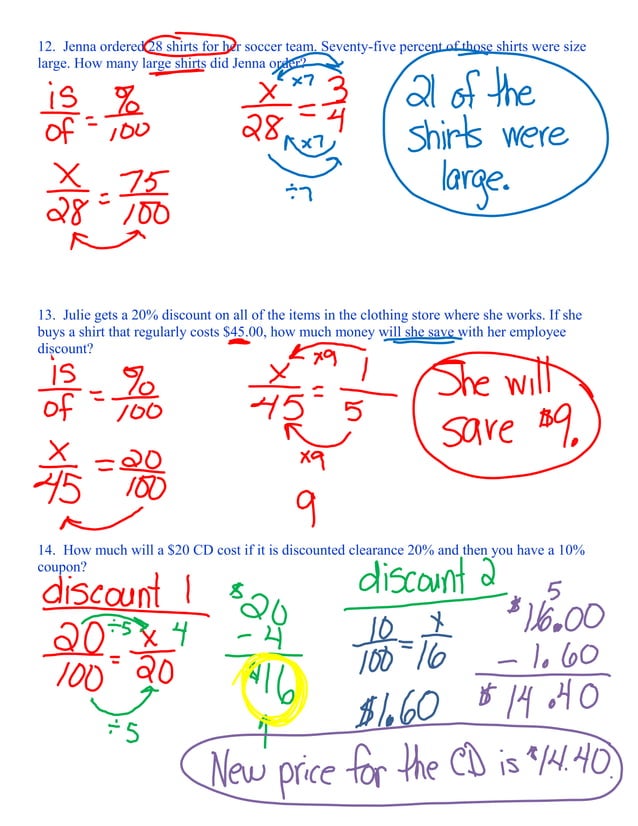 12. Jenna ordered 28 shirts for her soccer team. Seventy-five percent of those shirts were size
large. How many large shirts did Jenna order?
is/of = %/100
x/28 = 75/100
x/28 = 3/4
x7
x7
÷7
21 of the
shirts were
large.
13. Julie gets a 20% discount on all of the items in the clothing store where she works. If she
buys a shirt that regularly costs $45.00, how much money will she save with her employee
discount?
is/of = %/100
x/45 = 20/100
x9
x/45 = 1/5
x9
9
She will
save $9.
14. How much will a $20 CD cost if it is discounted clearance 20% and then you have a 10%
coupon?
discount 1
20/100 = x/20
÷5
4
÷5
$20
- 4
$16
discount 2
10/100 = x/16
$1.60
5
$16.00
- 1.60
$14.40
New price for the CD is $14.40.